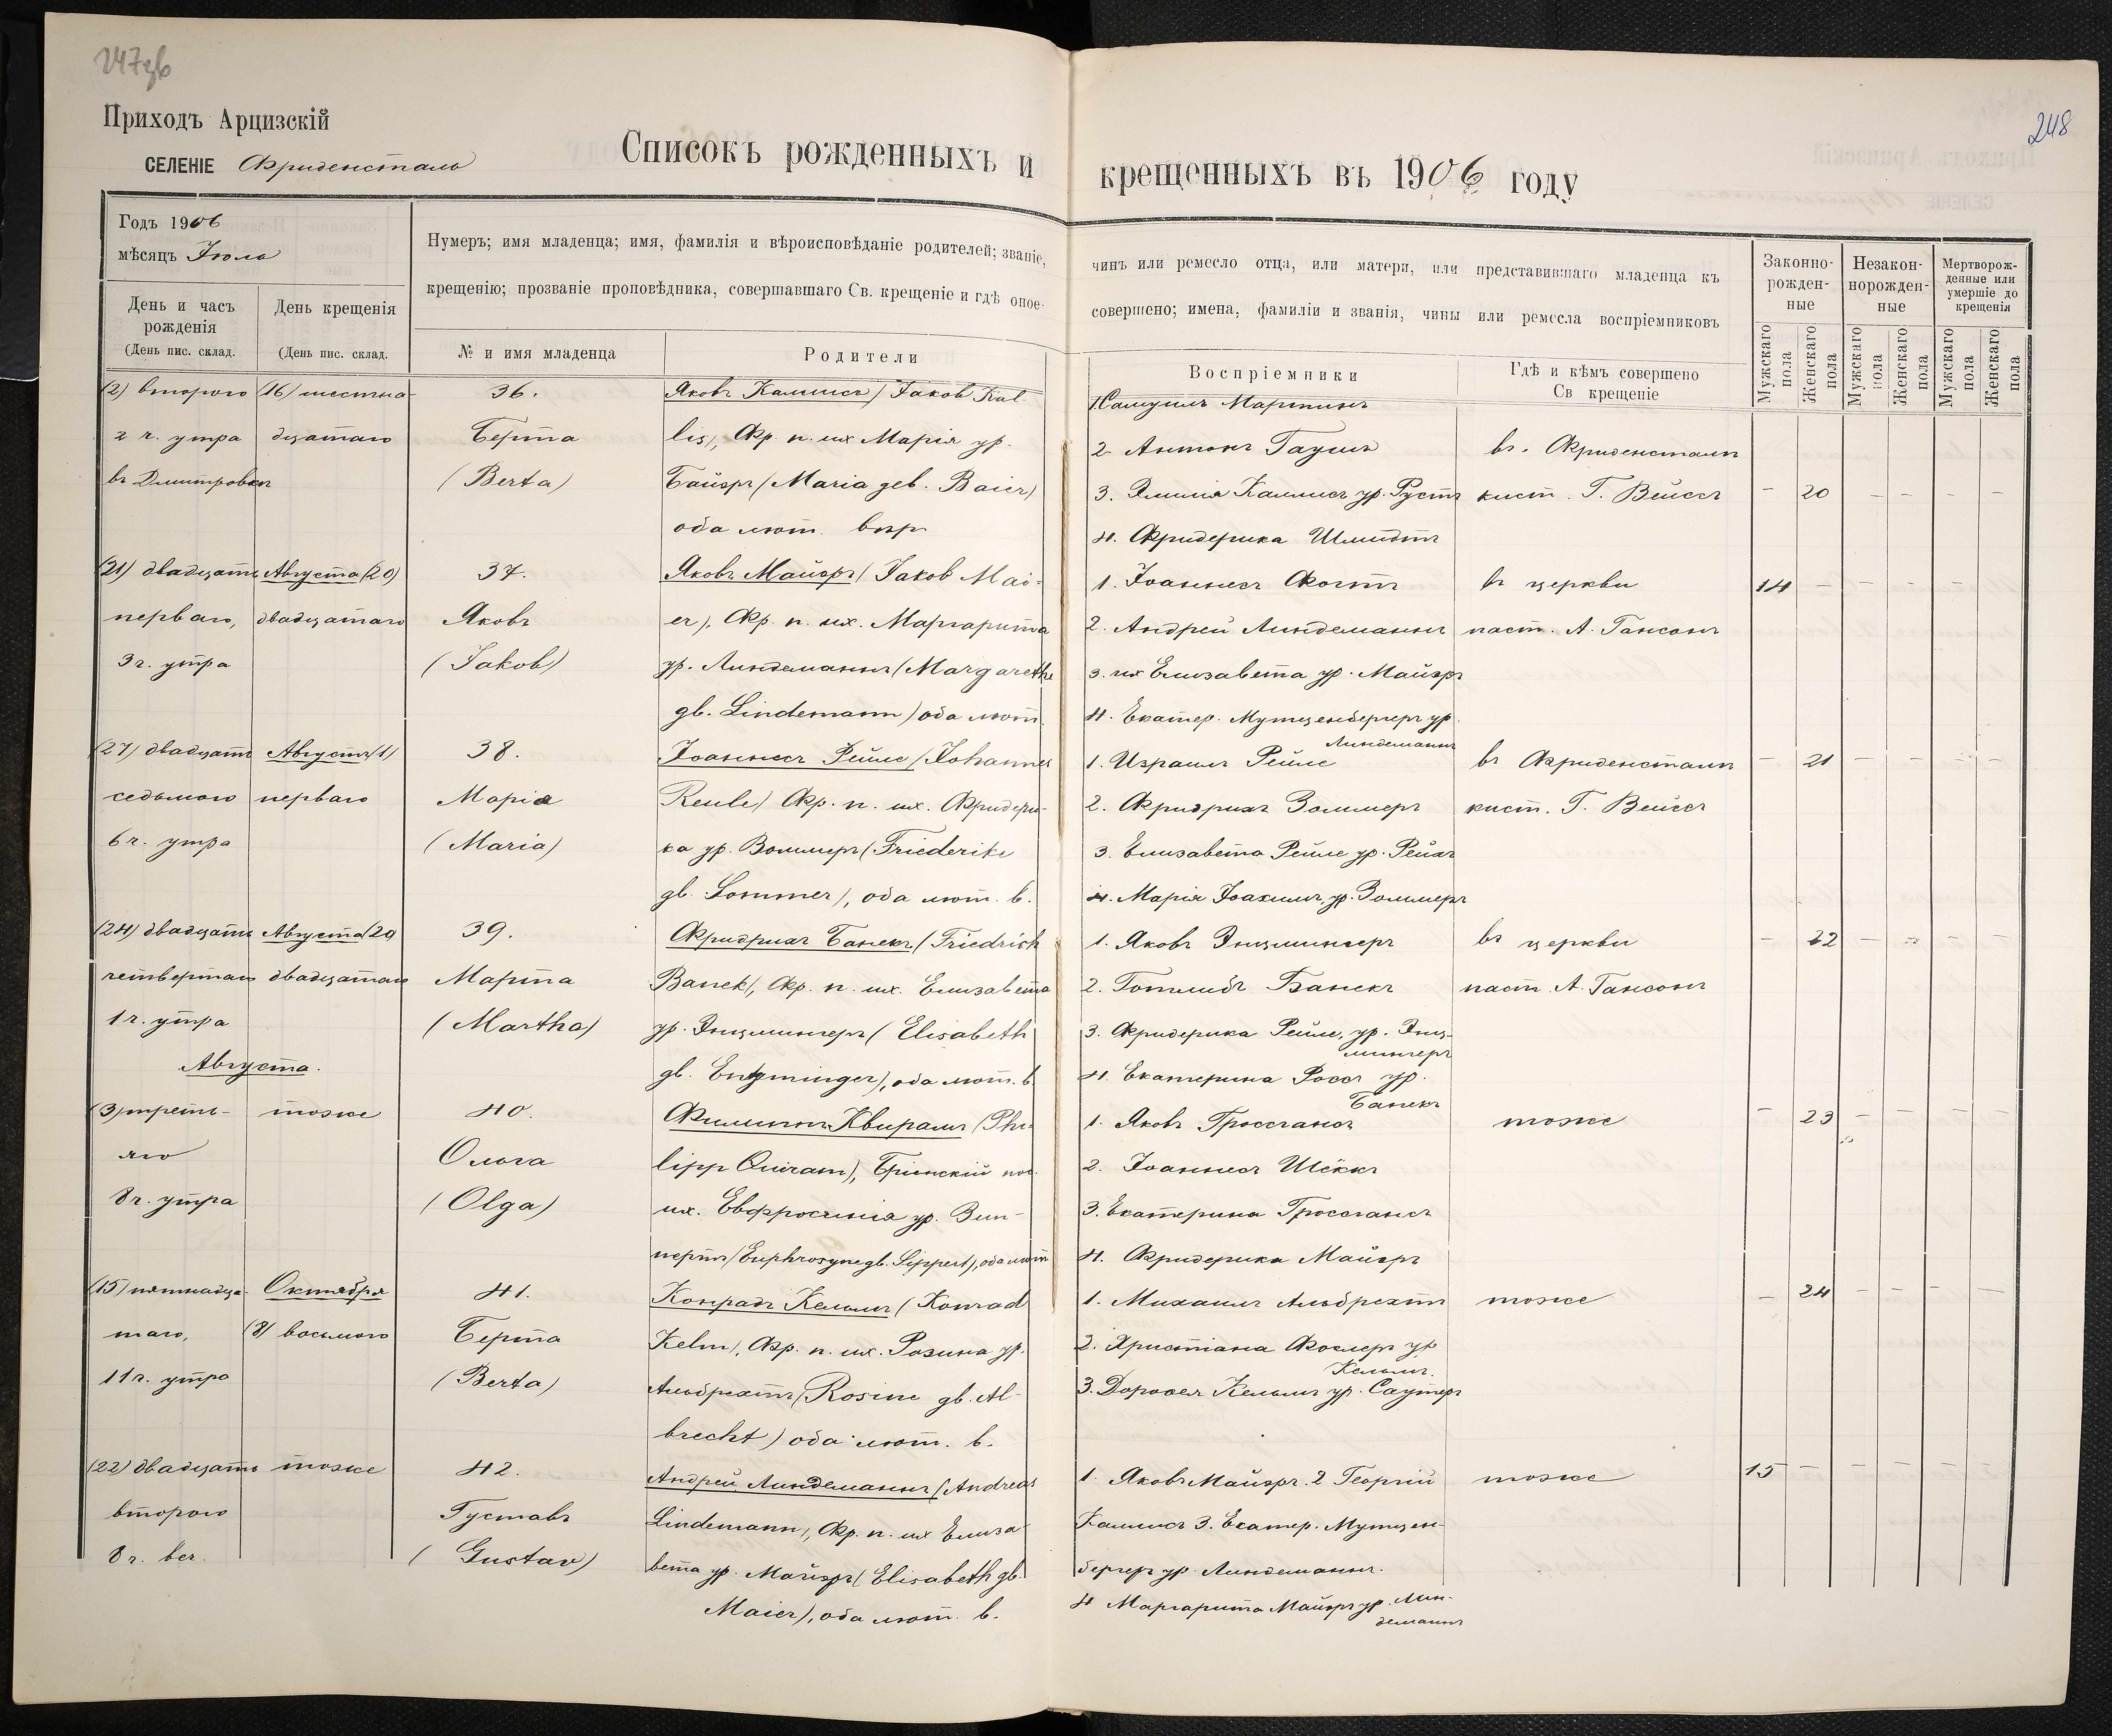 247об
248
Приходъ Арцизскій
СЕЛЕНІЕ Фриденсталь
Списокъ рожденныхъ и крещенныхъ въ 1906 году
Годъ 1906
мѣсяцъ Іюль
Нумеръ; имя младенца; имя, фамилія и вѣроисповѣданіе родителей; званіе, чинъ или ремесло отца, или матери, или представившаго младенца къ
крещенію; прозваніе проповѣдника, совершавшаго Св. крещеніе и гдѣ оное совершено; имена, фамиліи и званія, чины или ремесла воспріемниковъ
День и часъ
рожденія
(День пис. склад.
День крещенія
(День пис. склад.
№ и имя младенца
Родители
Воспріемники
Гдѣ и кѣмъ совершено
Св крещеніе
Законно-
рожден-
ные
Незакон-
норожден-
ные
Мертворож-
денные или
умершіе до
крещенія
Мужскаго пола
Женскаго пола
Мужскаго пола
Женскаго пола
Мужскаго пола
Женскаго пола
(2) второго
2 ч. утра
въ Дмитровкѣ
(16) шестна-
дцатаго
36.
Берта
(Berta)
Яковъ Каллисъ (Jakob Kal-
lis), Фр. п. их Марія ур.
Байэръ (Maria geb. Baier)
оба лют. вѣр
1. Самуилъ Мартинъ
2 Антонъ Гаушъ
3. Эмилія Каллисъ ур. Рустъ
4. Фридерика Шмидтъ
въ. Фриденсталѣ
кист. Г. Вейссъ
— 20 — — — —
(21) двадцать
перваго,
3 ч. утра
Августа (20)
двадцатаго
37.
Яковъ
(Jakob)
Яковъ Майэръ (Jakob Mai-
er), Фр. п. их. Маргарита
ур. Линдеманнъ (Margarethe
gb. Lindemann) оба лют.
1. Іоаннесъ Фогтъ
2. Андрей Линдеманнъ
3. их Елизавета ур. Майэръ
4. Екатер. Мутценбергеръ ур.
Линдеманнъ
въ церкви
паст. А. Гансонъ
14 — — — — —
(27) двадцать
седьмого
6 ч. утра
Августа (1)
перваго
38.
Марія
(Maria)
Іоаннесъ Рейле (Johannes
Reule) Фр. п. их. Фридери-
ка ур. Зоммеръ (Friederike
gb. Sommer), оба лют. в.
1. Израиль Рейле
2. Фридрихъ Зоммеръ
3. Елизавета Рейле ур. Рейхъ
4. Марія Іоахимъ, ур. Зоммеръ
въ Фриденсталѣ
кист. Г. Вейссъ
— 21 — — — —
(24) двадцать
четвертаго
1 ч. утра
Августа (20
двадцатаго
39.
Марта
(Martha)
Фридрихъ Банекъ (Friedrich
Banek), Фр. п. их. Елизавета
ур. Энцмингеръ (Elisabeth
gb. Entzminger), оба лют. в.
1. Яковъ Энцмингеръ
2. Готлибъ Банекъ
3. Фридерика Рейле, ур. Энц-
мингеръ
4. Екатерина Россъ ур.
Банекъ
въ церкви
паст. А. Гансонъ
— 22 — — — —
Августа.
(3) треть-
яго
8 ч. утра
тоже
40.
Ольга
(Olga)
Филиппъ Квирамъ (Phi-
lipp Quiram), Бріенскій пос.
их. Евфросинія ур. Зип-
пертъ (Euphrosyne gb. Sippert), оба лют
1. Яковъ Гроссгансъ
2. Іоаннесъ Шёккъ
3. Екатерина Гроссгансъ
4. Фридерика Майэръ
тоже
— 23 — — — —
(15) пятнадца-
таго,
11 ч. утра
Октября
(8) восьмого
41.
Берта
(Berta)
Конрадъ Кельмъ (Konrad
Kelm), Фр. п. их. Розина ур.
Альбрехтъ (Rosine gb. Al-
brecht) оба лют. в.
1. Михаилъ Альбрехтъ
2. Христіана Фослеръ ур
Кельмъ.
3. Доротея Кельмъ ур. Саутеръ
тоже
— 24 — — — —
(22) двадцать
второго
8 ч. веч.
тоже
42.
Густавъ
(Gustav)
Андрей Линдеманнъ (Andreas
Lindemann), Фр. п. их Елиза-
вета ур. Майэръ (Elisabeth gb.
Maier), оба лют. в.
1. Яковъ Майэръ. 2 Георгій
Каллисъ 3. Екатер. Мутцен-
бергеръ ур. Линдеманнъ.
4 Маргарита Майэръ ур. Лин-
деманнъ
тоже
15 — — — — —